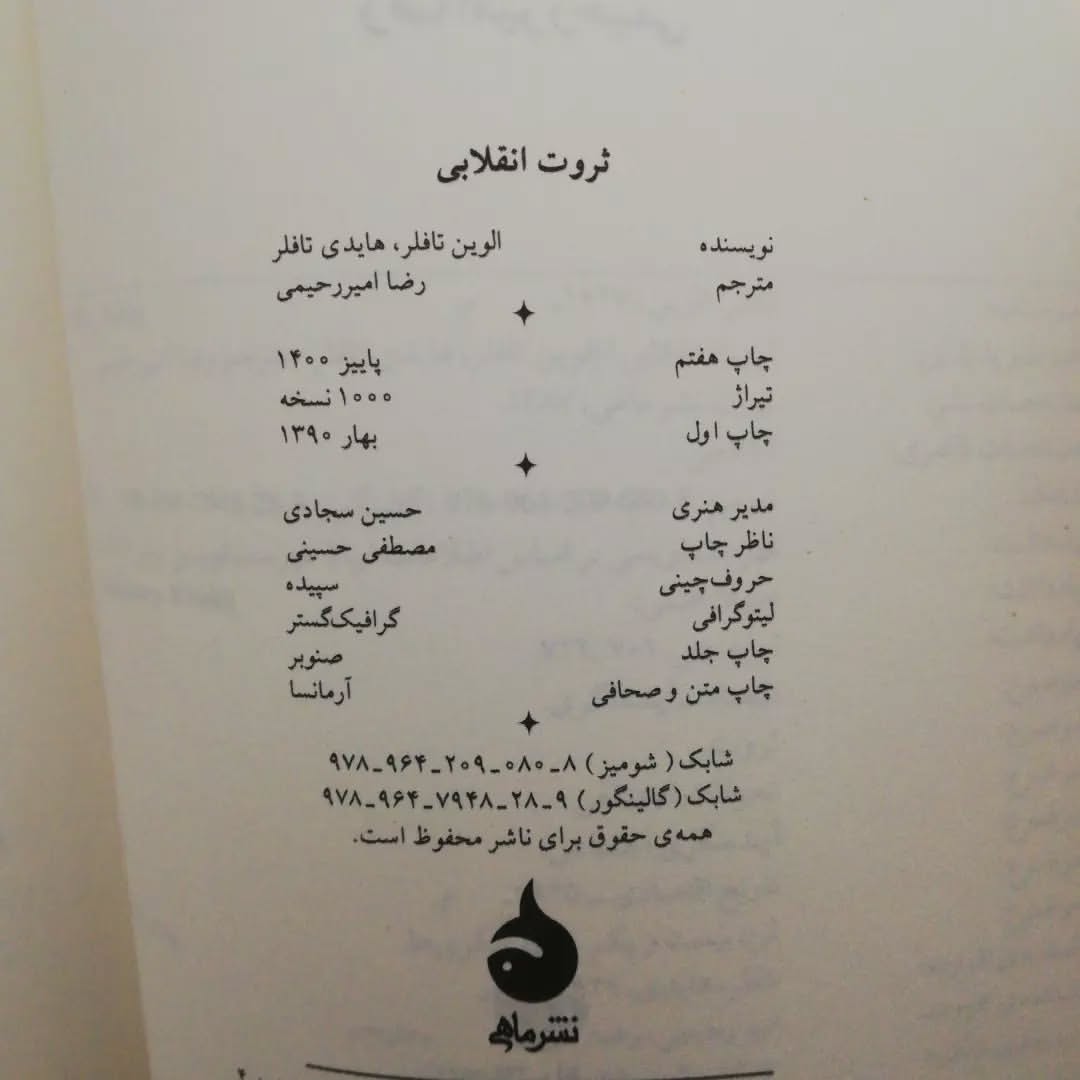 ثروت انقلابی
نویسنده الوین تافلر، هایدی تافلر
مترجم رضا امیررحیمی
چاپ هفتم پاییز ۱۴۰۰
تیراژ ۱۰۰۰ نسخه
چاپ اول بهار ۱۳۹۰
مدیر هنری حسین سجادی
ناظر چاپ مصطفی حسینی
حروف‌چینی سپیده
لیتوگرافی گرافیک‌گستر
چاپ جلد صنوبر
چاپ متن و صحافی آرمانسا
شابک (شومیز) ۸-۰۸۰-۲۰۹-۹۶۴-۹۷۸
شابک (گالینگور) ۹-۲۸-۷۹۴۸-۹۶۴-۹۷۸
همه‌ی حقوق برای ناشر محفوظ است.
نشرماهی